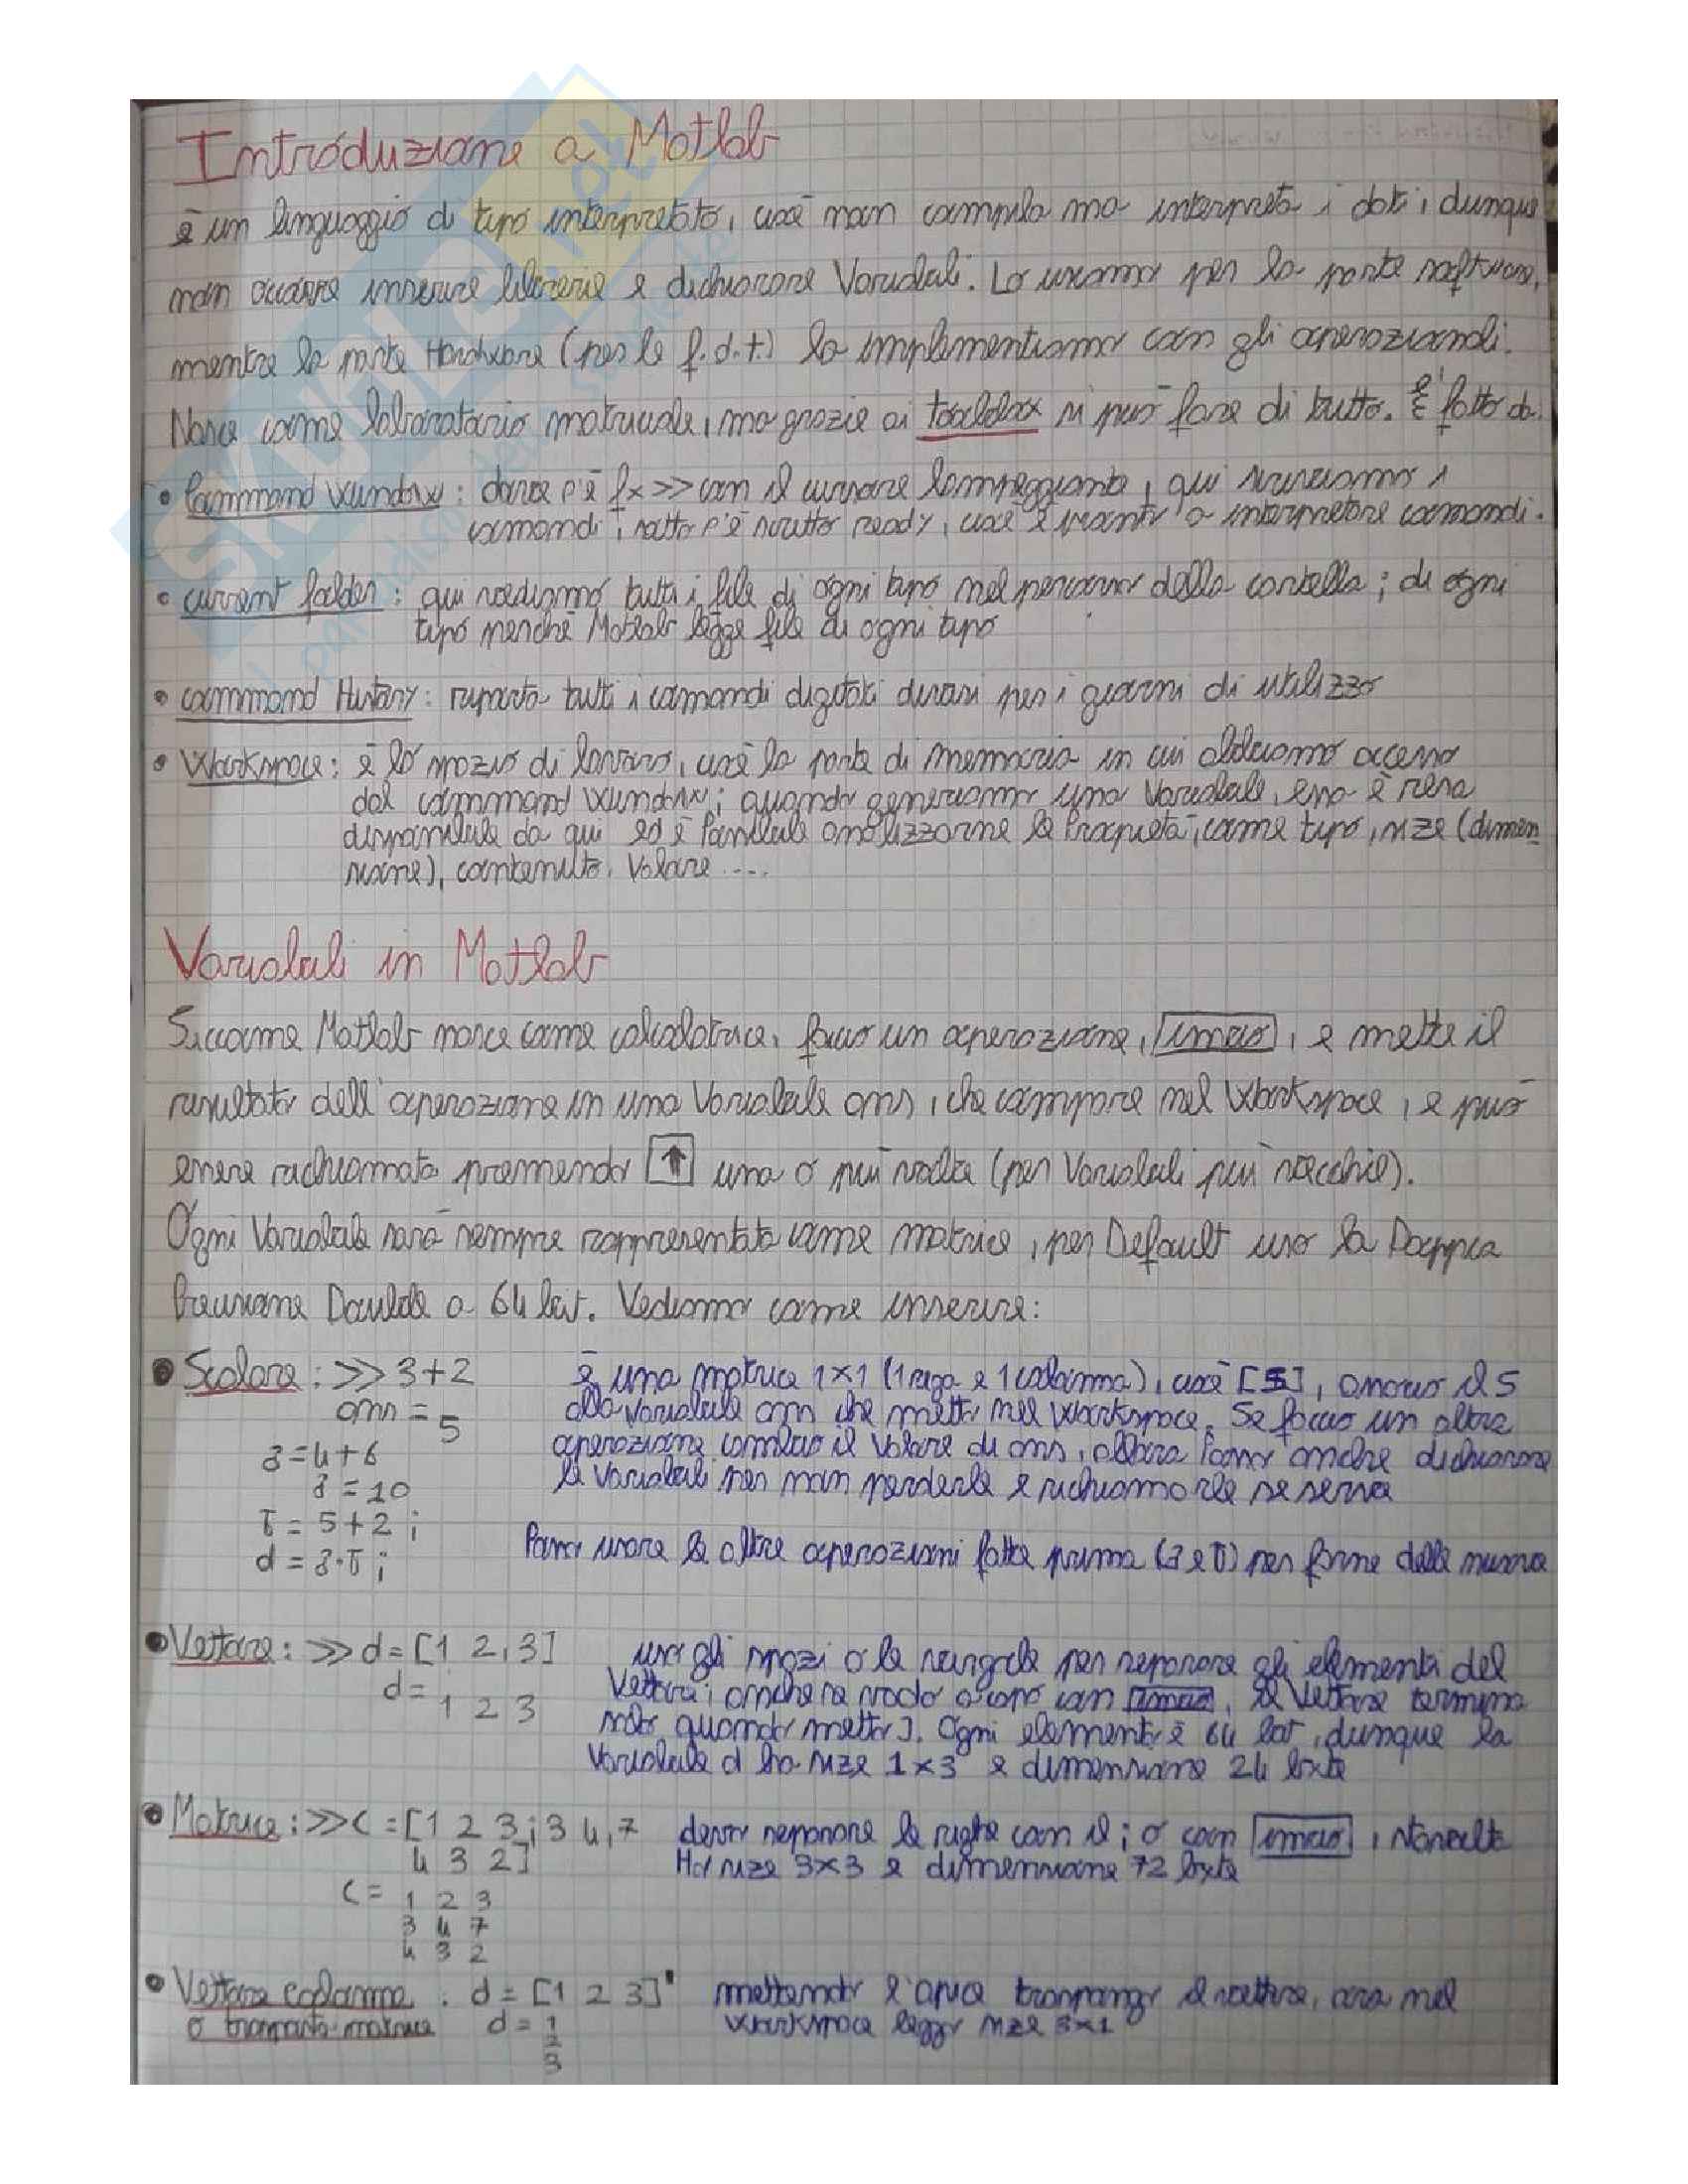 Introduzione a Matlab
è un linguaggio di tipo interpretato, cioè non compila ma interpreta i dati; dunque
non occorre inserire librerie e dichiarare Variabili. Lo usiamo per la parte software,
mentre la parte Hardware (per le f.d.t.) la implementiamo con gli operazionali.
Nasce come laboratorio matriciale, ma grazie ai toolbox si può fare di tutto. È fatto da:
• Command window: dove c'è fx >> con il cursore lampeggiante, qui scriviamo i
comandi; sotto c'è scritto ready, cioè è pronto a interpretare comandi.
• current folder: qui vediamo tutti i file di ogni tipo nel percorso della cartella; di ogni
tipo perché Matlab legge file di ogni tipo
• command History: riporta tutti i comandi digitati divisi per i giorni di utilizzo
• Workspace: è lo spazio di lavoro, cioè la parte di memoria in cui abbiamo accesso
dal command window; quando generiamo una Variabile, essa è resa
disponibile da qui ed è Possibile analizzarne le Proprietà, come tipo, size (dimen
sione), contenuto, Valore ....
Variabili in Matlab
Siccome Matlab nasce come calcolatrice, faccio un operazione, invio, e mette il
risultato dell'operazione in una Variabile ans, che compare nel Workspace, e può
essere richiamata premendo ↑ una o più volte (per Variabili più vecchie).
Ogni Variabile sarà sempre rappresentata come matrice, per Default uso la Doppia
Precisione Double a 64 bit. Vediamo come inserire:
• Scalare: >> 3+2 è una matrice 1x1 (1 riga e 1 colonna), cioè [5], associo il 5
ans = 5 alla variabile ans che metti nel workspace. Se faccio un altra
z=4+6 operazione cambio il Valore di ans, allora Posso anche dichiarare
z=10 le Variabili per non perderle e richiamarle se serve
t = 5+2 ;
d = z·t ; Posso usare le altre operazioni fatte prima (z e t) per farne delle nuove
• Vettore: >> d=[1 2,3] uso gli spazi o le virgole per separare gli elementi del
d= 1 2 3 Vettore; anche se vado a capo con invio, il Vettore termina
solo quando metto ]. Ogni elemento è 64 bit, dunque la
Variabile d ha size 1x3 e dimensione 24 byte
• Matrice: >> C =[1 2 3;3 4,7 devo separare le righe con il ; o con invio,
4 3 2] Ha size 3x3 e dimensione 72 byte
C= 1 2 3
3 4 7
4 3 2
• Vettore colonna : d = [1 2 3]' mettendo l'apice traspongo il vettore, ora nel
o trasposta matrice d = 1 workspace leggo size 3x1
2
3